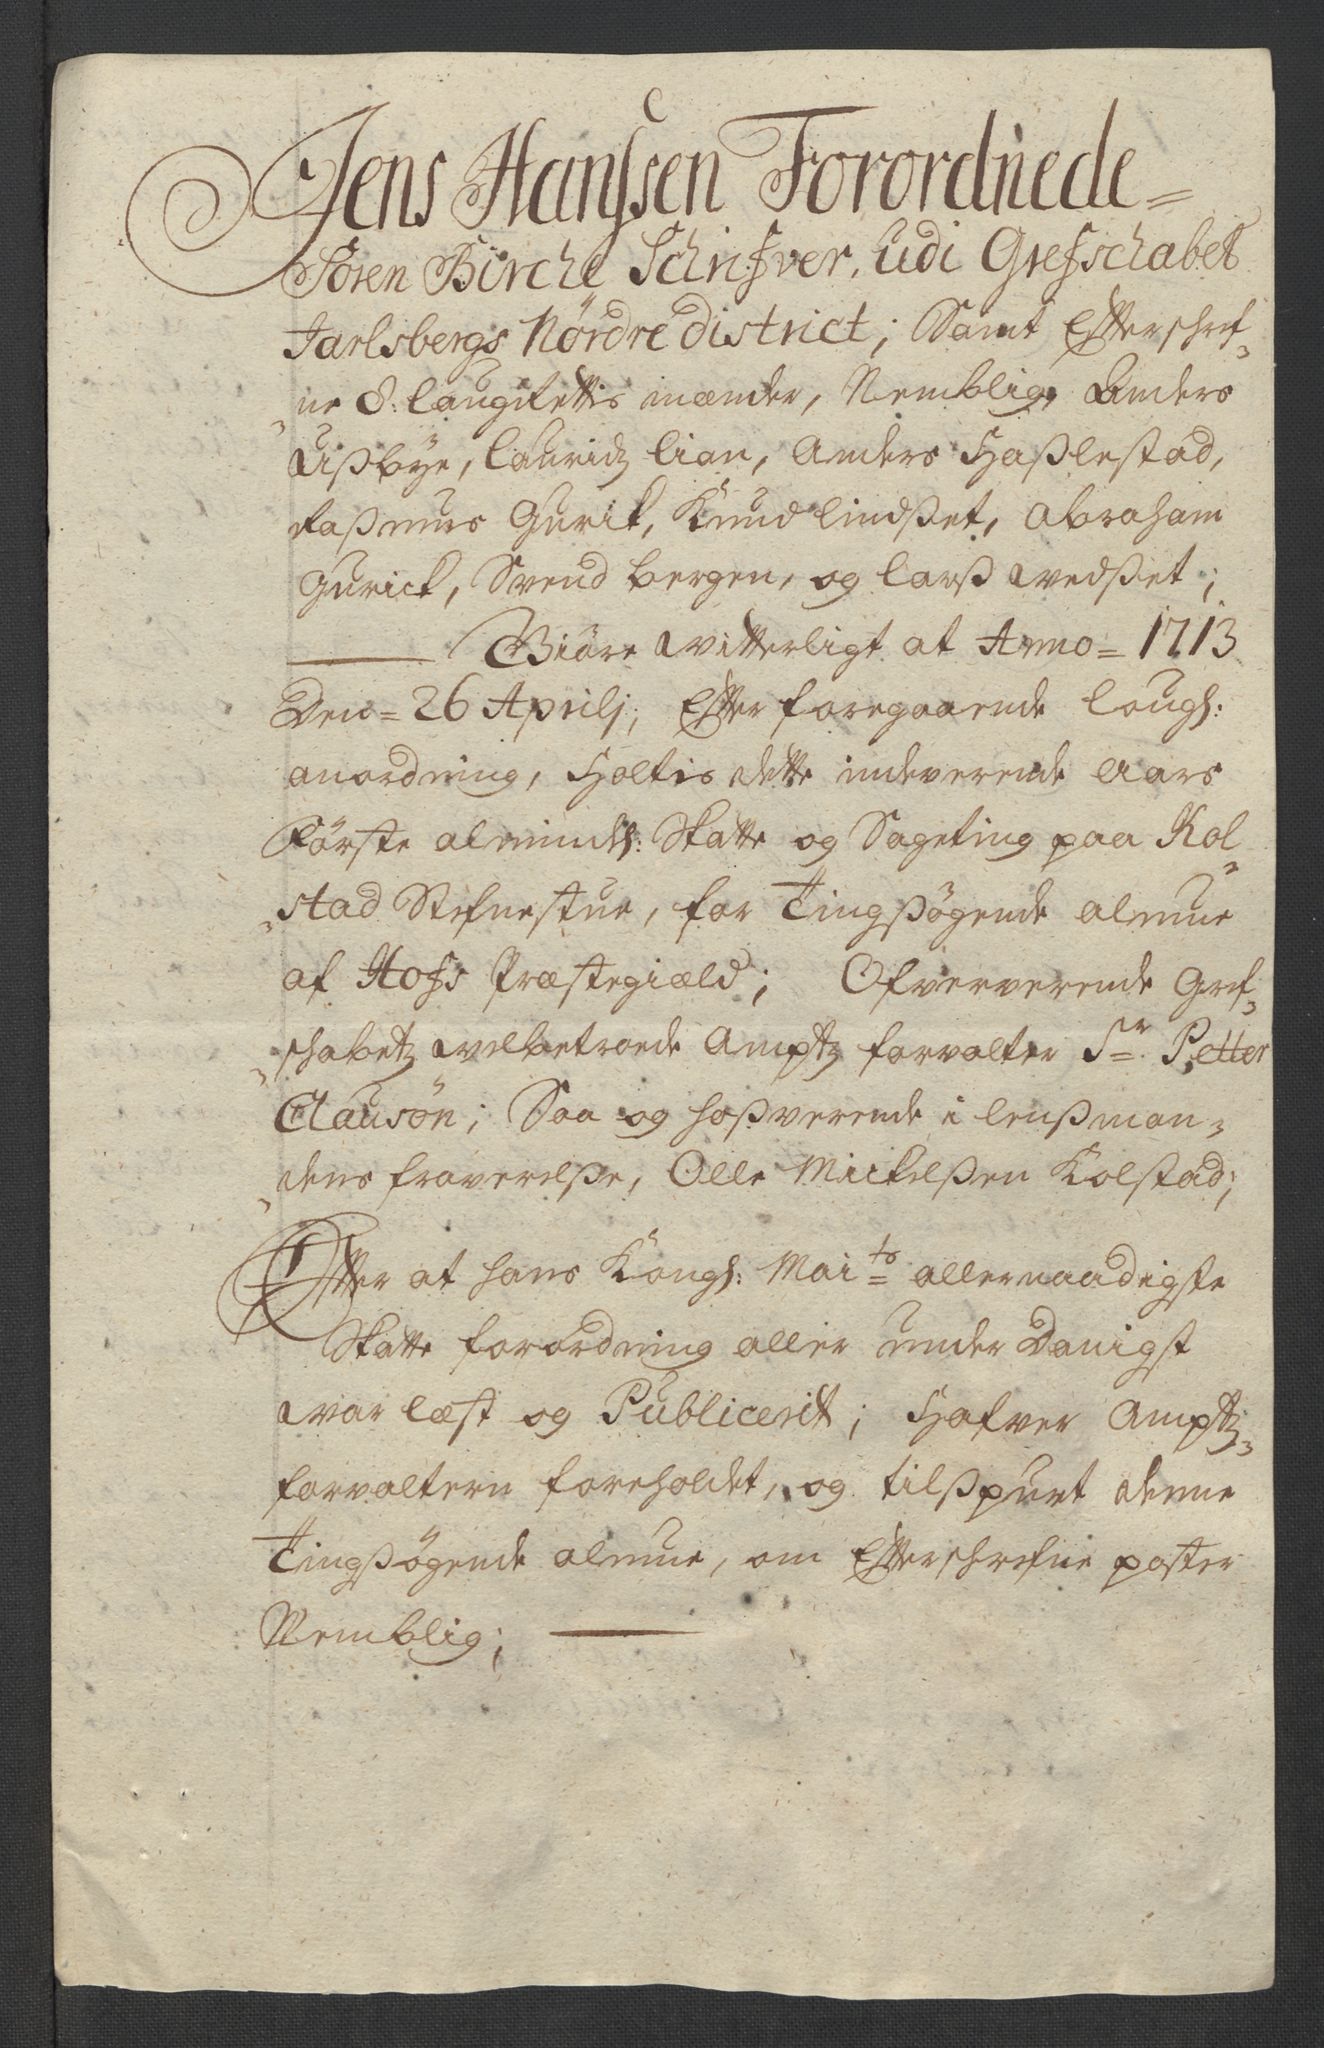 Jens Hanssen Forordnede=
Soren Birche Schrifver, Udi Grefschabet
Jarlsbergs Nördre district; Samt Efterschref-
ne 8. laugrettis mænder, Nemblig, Anders
Ußbÿe, lauridtz lian, Anders Haßlestad,
Raßmus Gurik, Knud lindßet, Abraham
Gurick, Svend bergen, og larß wedßet;
Giöre witterligt at Anno= 1713
Den= 26 Aprilj; Efter foregaaende lough:
anordning, Holtis dette indeverende Aars
Förste almindl: Skatte og Sageting paa Kol-
stad Stefnestue, for Tingßögende almue
af Hofs Præstegiæld; Ofververende Gref-
schabetz welbetroede Amptz forvalter Sr. Petter
Clausön; Saa og hoßverende i lenßman-
dens fraverelße, Olle Mickelßen Kolstad;
Efter at hans Kongl: Maits allernaadigste
Skatte forordning aller under Danigst
war læst og Publicerit; Hafver Amptz-
forvaltern foreholdet, og tilßpurt denne
Tingßögende almue, om Efterschrefne poster
Nemblig;